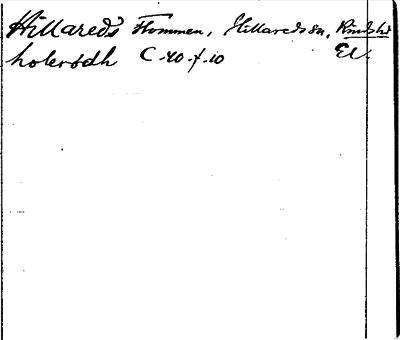 Hillareds Kommen, Hillareds sn, Kinds hd
holerödh C-40-f.10 El.